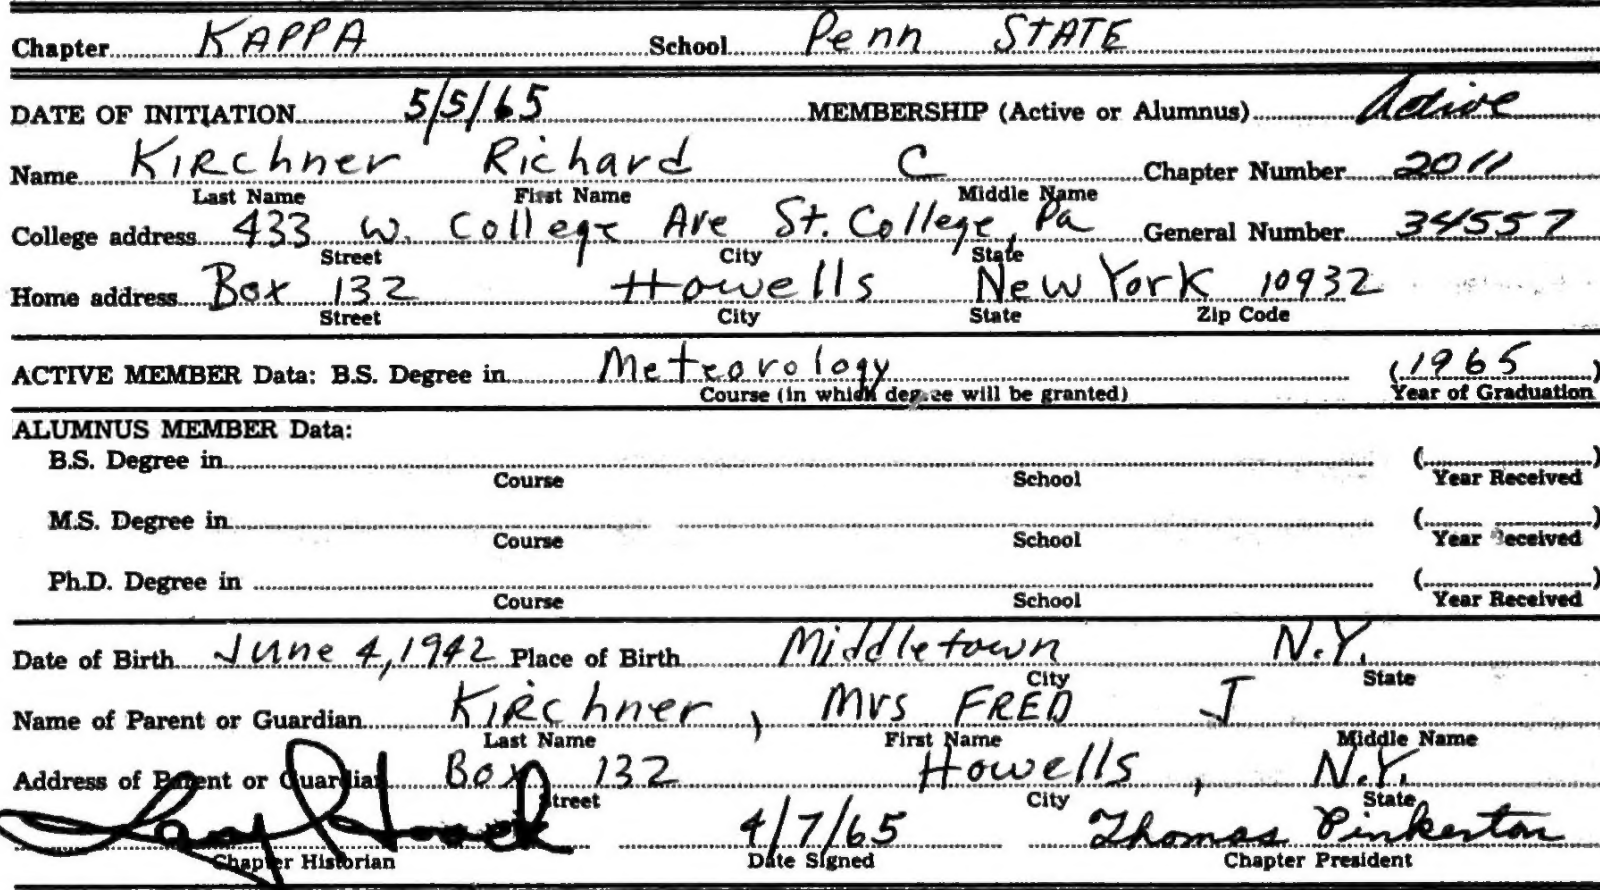 Chapter KAPPA School Penn STATE
DATE OF INITIATION 5/5/65 MEMBERSHIP (Active or Alumnus) Active
Name Kirchner Richard C Chapter Number 2011
Last Name First Name Middle Name
College address 433 W. College Ave St. College, Pa General Number 34557
Street City State
Home address Box 132 Howells New York 10932
Street City State Zip Code
ACTIVE MEMBER Data: B.S. Degree in Meteorology (1965)
Course (in which degree will be granted) Year of Graduation
ALUMNUS MEMBER Data:
B.S. Degree in ( )
Course School Year Received
M.S. Degree in ( )
Course School Year Received
Ph.D. Degree in ( )
Course School Year Received
Date of Birth June 4, 1942 Place of Birth Middletown N.Y.
City State
Name of Parent or Guardian Kirchner, Mrs FRED J
Last Name First Name Middle Name
Address of Parent or Guardian Box 132 Howells, N.Y.
Street City State
4/7/65 Thomas Pinkerton
Chapter Historian Date Signed Chapter President